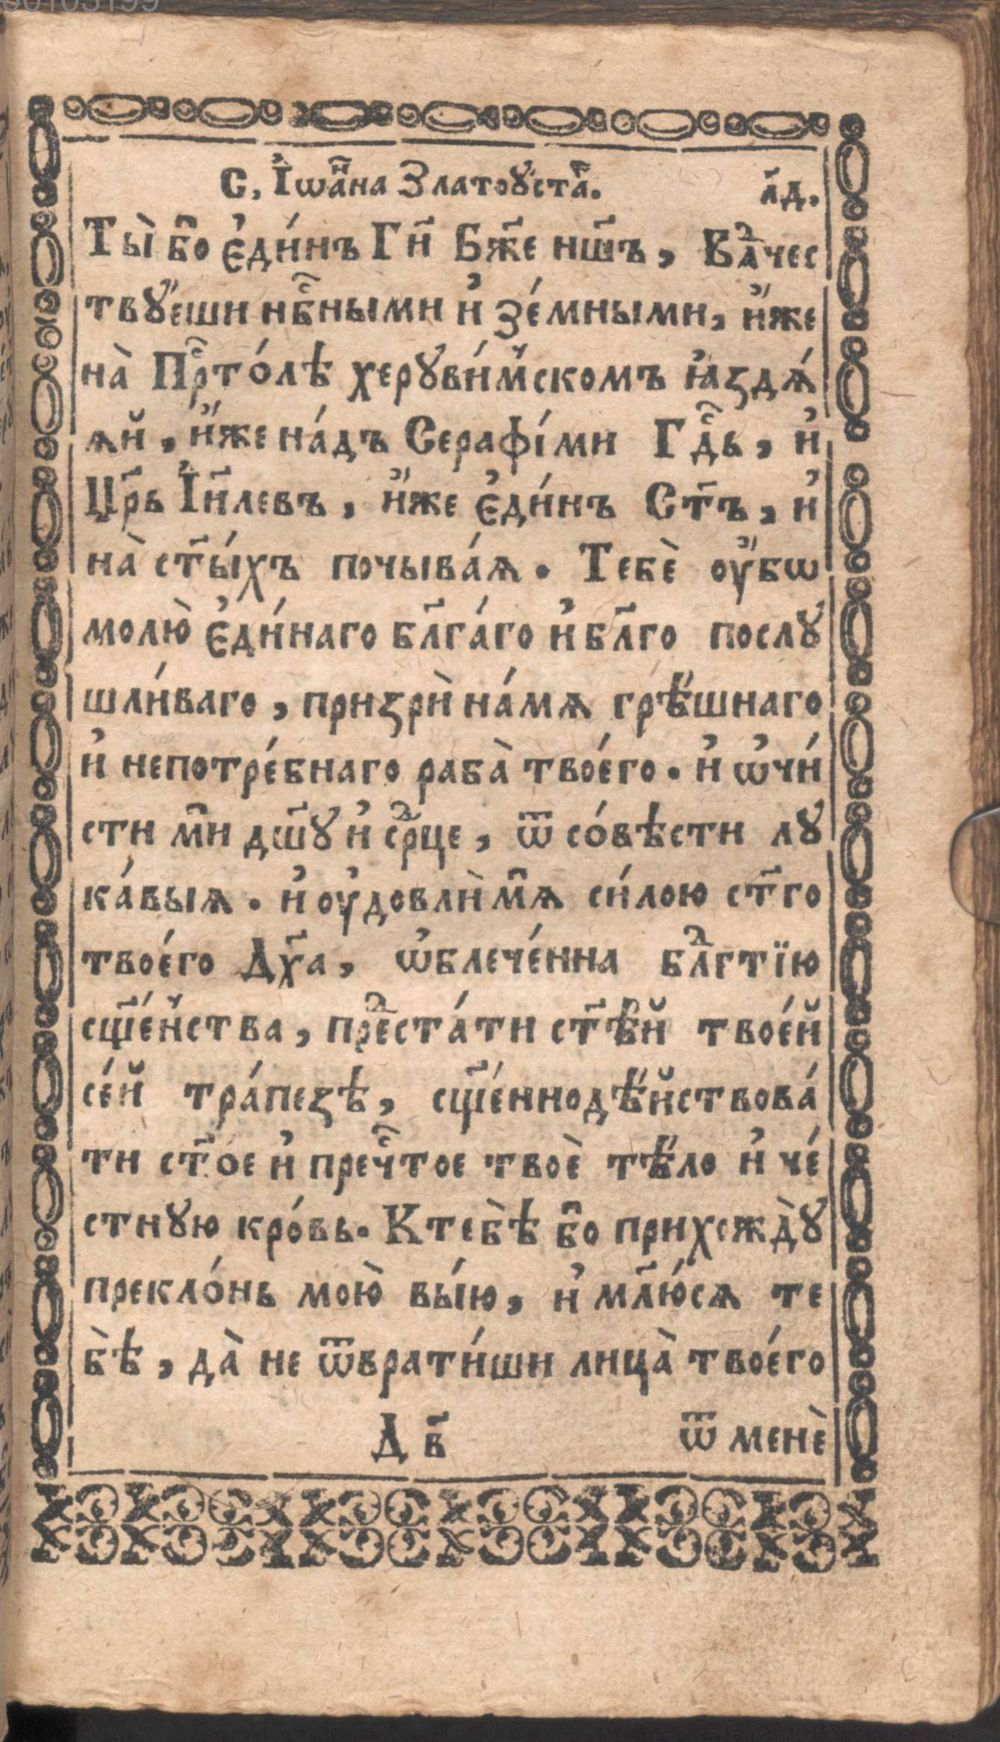 С, І҆ѡа҆́нна Златоꙋ́стаⷢ҇. л҃д.
Ты̀ бо҆ є҆ди́нъ Гн҃ Бж҃е нш҃ъ, Влⷣчес
твꙋ́еши нбⷭ҇ными и҆ зе́мными, и҆́же
на̀ Прⷭ҇то́лѣ херꙋви́мскомъ ꙗ҆здѧ́
ѧй, и҆́же на́дъ Серафі́ми Гдⷭ҇ь, и҆
Цр҃ь І҆и҃левъ, и҆́же є҆ди́нъ Ст҃ъ, и҆
на̀ ст҃ы́хъ почыва́ѧ. Тебѐ оу҆́бѡ
молю̀ є҆ди́наго бл҃га́го и҆ бл҃го послꙋ
шли́ваго, призрѝ на́мѧ грѣ́шнаго
и҆ непотре́бнаго раба̀ твоего̀. и҆ ѡ҆чи́
сти ми҆ дш҃ꙋ и҆ срⷣце, ѿ со́вѣсти лꙋ
ка́выѧ. и҆ оу҆довлѝ мѧ҆ си́лою ст҃го
твоего̀ Дх҃а, ѡ҆блече́нна блⷣгтїю
сщ҃е́нства, преⷣста́ти ст҃ѣ́й твое́й
се́й тра́пезѣ, сщ҃е́ннодѣ́йствова́
ти ст҃ое и҆ пречⷭ҇тое твоѐ тѣ́ло и҆ че́
стнꙋю кро́вь. Ктебѣ̀ бо҆ прихожд̀ꙋ
прекло́нь мою̀ вы́ю, и҆ мл҃ю́сѧ те
бѣ̀, да̀ не ѿврати́ши лица̀ твоего̀
Д в҃ ѿ менѐ